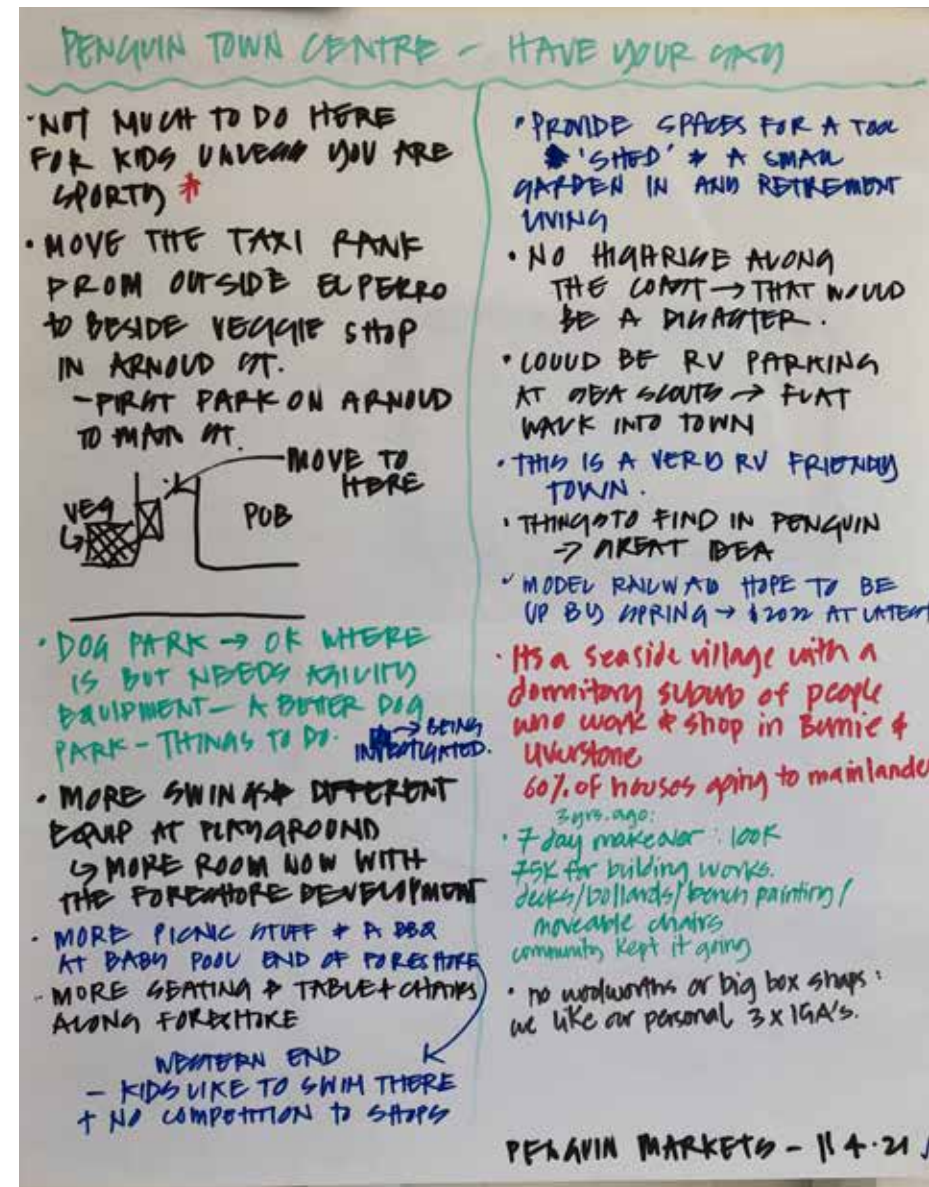 PENGUIN TOWN CENTRE - HAVE YOUR SAY
• NOT MUCH TO DO HERE
FOR KIDS UNLESS YOU ARE
SPORTY *
• MOVE THE TAXI RANK
FROM OUTSIDE EL PERRO
to BESIDE VEGGIE SHOP
IN ARNOLD ST.
- FIRST PARK ON ARNOLD
TO MAIN ST.
MOVE TO
HERE
VEG
PUB
• DOG PARK → OK WHERE
IS BUT NEEDS AGILITY
EQUIPMENT - A BETTER DOG
PARK - THINGS TO DO.
→ BEING
INVESTIGATED.
• MORE SWINGS & DIFFERENT
EQUIP AT PLAYGROUND
↳ MORE ROOM NOW WITH
THE FORESHORE DEVELOPMENT
• MORE PICNIC STUFF & A BBQ
AT BABY POOL END OF FORESHORE
- MORE SEATING & TABLE + CHAIRS
ALONG FORESHORE
WESTERN END
- KIDS LIKE TO SWIM THERE
+ NO COMPETITION to SHOPS
• PROVIDE SPACES FOR A TOOL
'SHED' & A SMALL
GARDEN IN AND RETIREMENT
LIVING
• NO HIGHRISE ALONG
THE COAST → THAT WOULD
BE A DISASTER.
• COULD BE RV PARKING
AT SEA SCOUTS → FLAT
WALK INTO TOWN
• THIS IS A VERY RV FRIENDLY
TOWN.
• THINGS TO FIND IN PENGUIN
→ GREAT IDEA
• MODEL RAILWAY HOPE TO BE
UP BY SPRING → 2022 AT LATEST
• Its a seaside village with a
dormitory suburb of people
who work & shop in Burnie &
Ulverstone
60% of houses going to mainlander
3yrs. ago:
• 7 day makeover: 100K
75K for building works.
decks/bollards/bench painting/
moveable chairs
community kept it going
• no woolworths or big box shops:
we like our personal 3 x IGA's.
PENGUIN MARKETS - 11 4.21